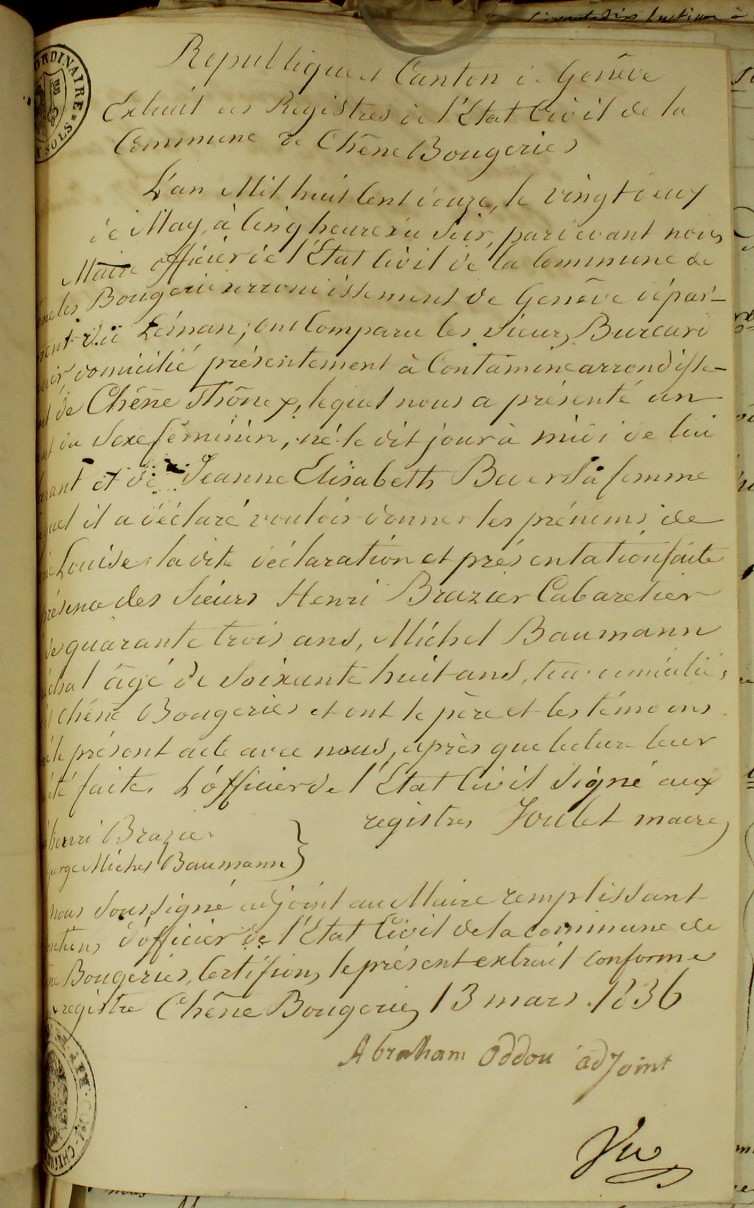 ORDINAIRE
SOLS
République et Canton de Genève
Extrait des Registres de l'Etat Civil de la
Commune de Chêne Bougeries
L'an Mil huit Cent douze, le vingt deux
de May, à Cinq heures du Soir, pardevant nous
Maire officier de l'Etat Civil de la Commune de
Bougeries arrondissement de Genève dépar-
du Léman, ont Comparu les Sieurs Burcard
domicilié présentement à Contamine arrondisse-
de Chêne Thônex, lequel nous a présenté un
du Sexe féminin, né le dit jour à midi de lui
et de Jeanne Elisabeth Bever Sa femme
quel il a déclaré vouloir donner les prénoms de
Louise, la dite déclaration et présentation faite
présence des Sieurs Henri Brazier Cabaretier
de quarante trois ans, Michel Baumann
âgé de Soixante huit ans, tous domiciliés
Chêne Bougeries et ont le père et les témoins
le présent acte avec nous, après que lecture leur
été faite. L'officier de l'Etat Civil Signé aux
registres Joulet maire
henri Brazier
Michel Baumann
nous Soussigné adjoint au Maire remplissant
d'officier de l'Etat Civil de la commune de
Bougeries, Certifions le présent extrait conforme
registre Chêne Bougeries 13 mars 1836
Abraham Oddou adjoint
Vu